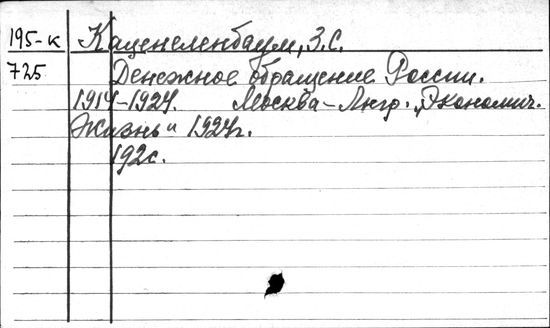 195-к Каценеленбаум, З.С.
725 Денежное обращение России.
1914-1924. Москва-Лнгр. „Экономич.
Жизнь" 1924г.
192с.